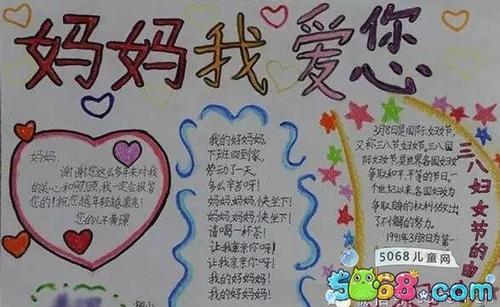 妈妈我爱您
妈妈:
谢谢您这么多年来对我
的关心和照顾,我一定会报答
您的!祝您越年轻越漂亮!
您的儿子黄璟
我的好妈妈,
下班回到家,
劳动了一天,
多么辛苦呀!
妈妈,妈妈,快坐下!
妈妈,妈妈,快坐下!
请喝一杯茶!
让我亲亲你呀!
让我亲亲你呀!
我的好妈妈!
我的好妈妈!
3月8日是国际妇女节,
又称三八妇女节。三八国
际妇女节,是世界各国妇女
争取和平平等的节日。一
个世纪以来,各国妇女为
争取自身的权利做出
了不懈的努力。
1991年3月8日为第一
三八妇女节的由
5068儿童网
5068.com